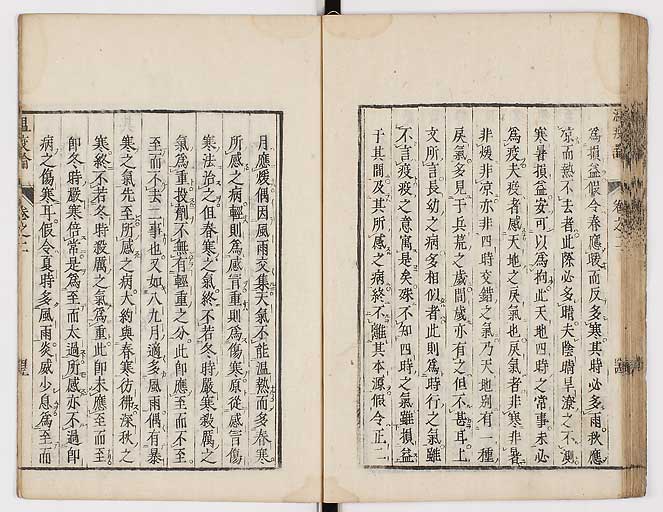 為損益假令春應暖而反多寒其時必多雨秋應
凉而熱不去者此際必多晴夫陰晴旱潦之不測
寒暑損益安可以為拘此天地四時之常事未必
為疫夫疫者感天地之戾氣也戾氣者非寒非暑
非煖非凉亦非四時交錯之氣乃天地別有一種
戾氣多見于兵荒之歲間歲亦有之但不甚耳上
文所言長幼之病多相似者此則為時行之氣雖
不言疫疫之意寓是矣殊不知四時之氣雖損益
于其間及其所感之病終不離其本源假令正二
月應煖偶因風雨交集天氣不能温熱而多春寒
所感之病輕則為感冒重則為傷寒原從感冒傷
寒法治之但春寒之氣終不若冬時嚴寒殺厲之
氣為重投劑不無有輕重之分此即應至而不至
至而不去二事也又如八九月適多風雨偶有暴
寒之氣先至所感之病大約與春寒彷彿深秋之
寒終不若冬時殺厲之氣為重此即未應至而至
即冬時嚴寒倍常是為至而太過所感亦不過即
病之傷寒耳假令夏時多風雨炎威少息為至而
温疫論 卷之二